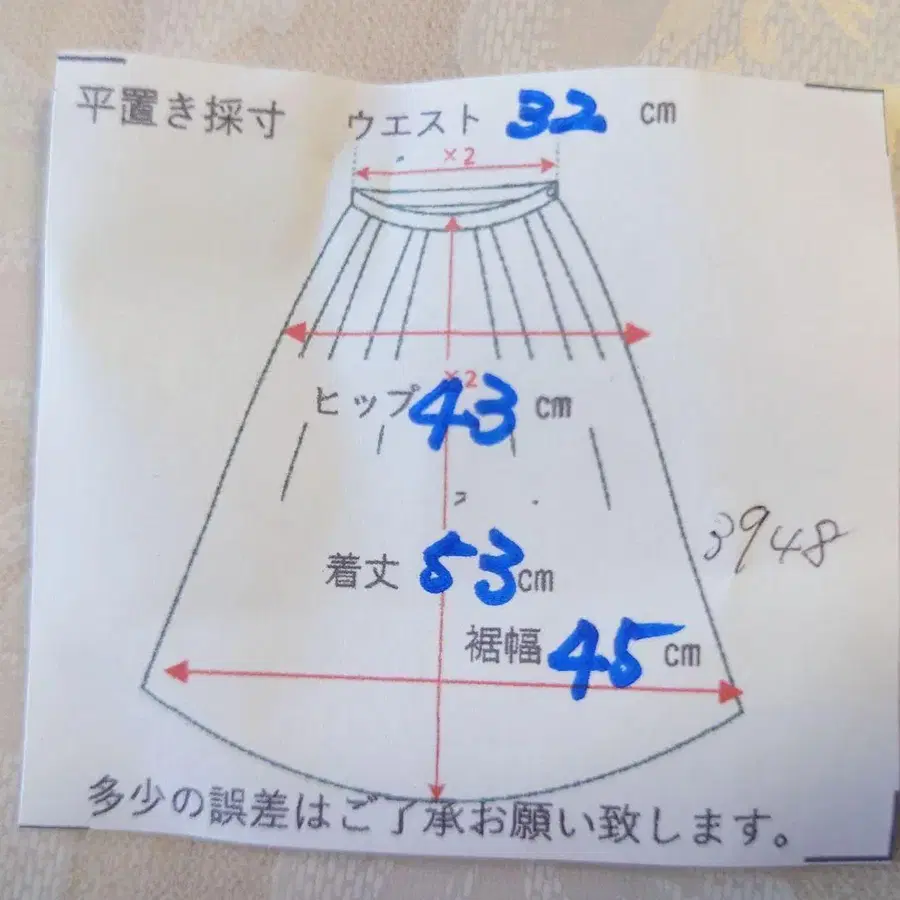 平置き採寸
ウエスト 32 cm
×2
×2
ヒップ 43 cm
3948
着丈 53 cm
裾幅 45 cm
多少の誤差はご了承お願い致します。